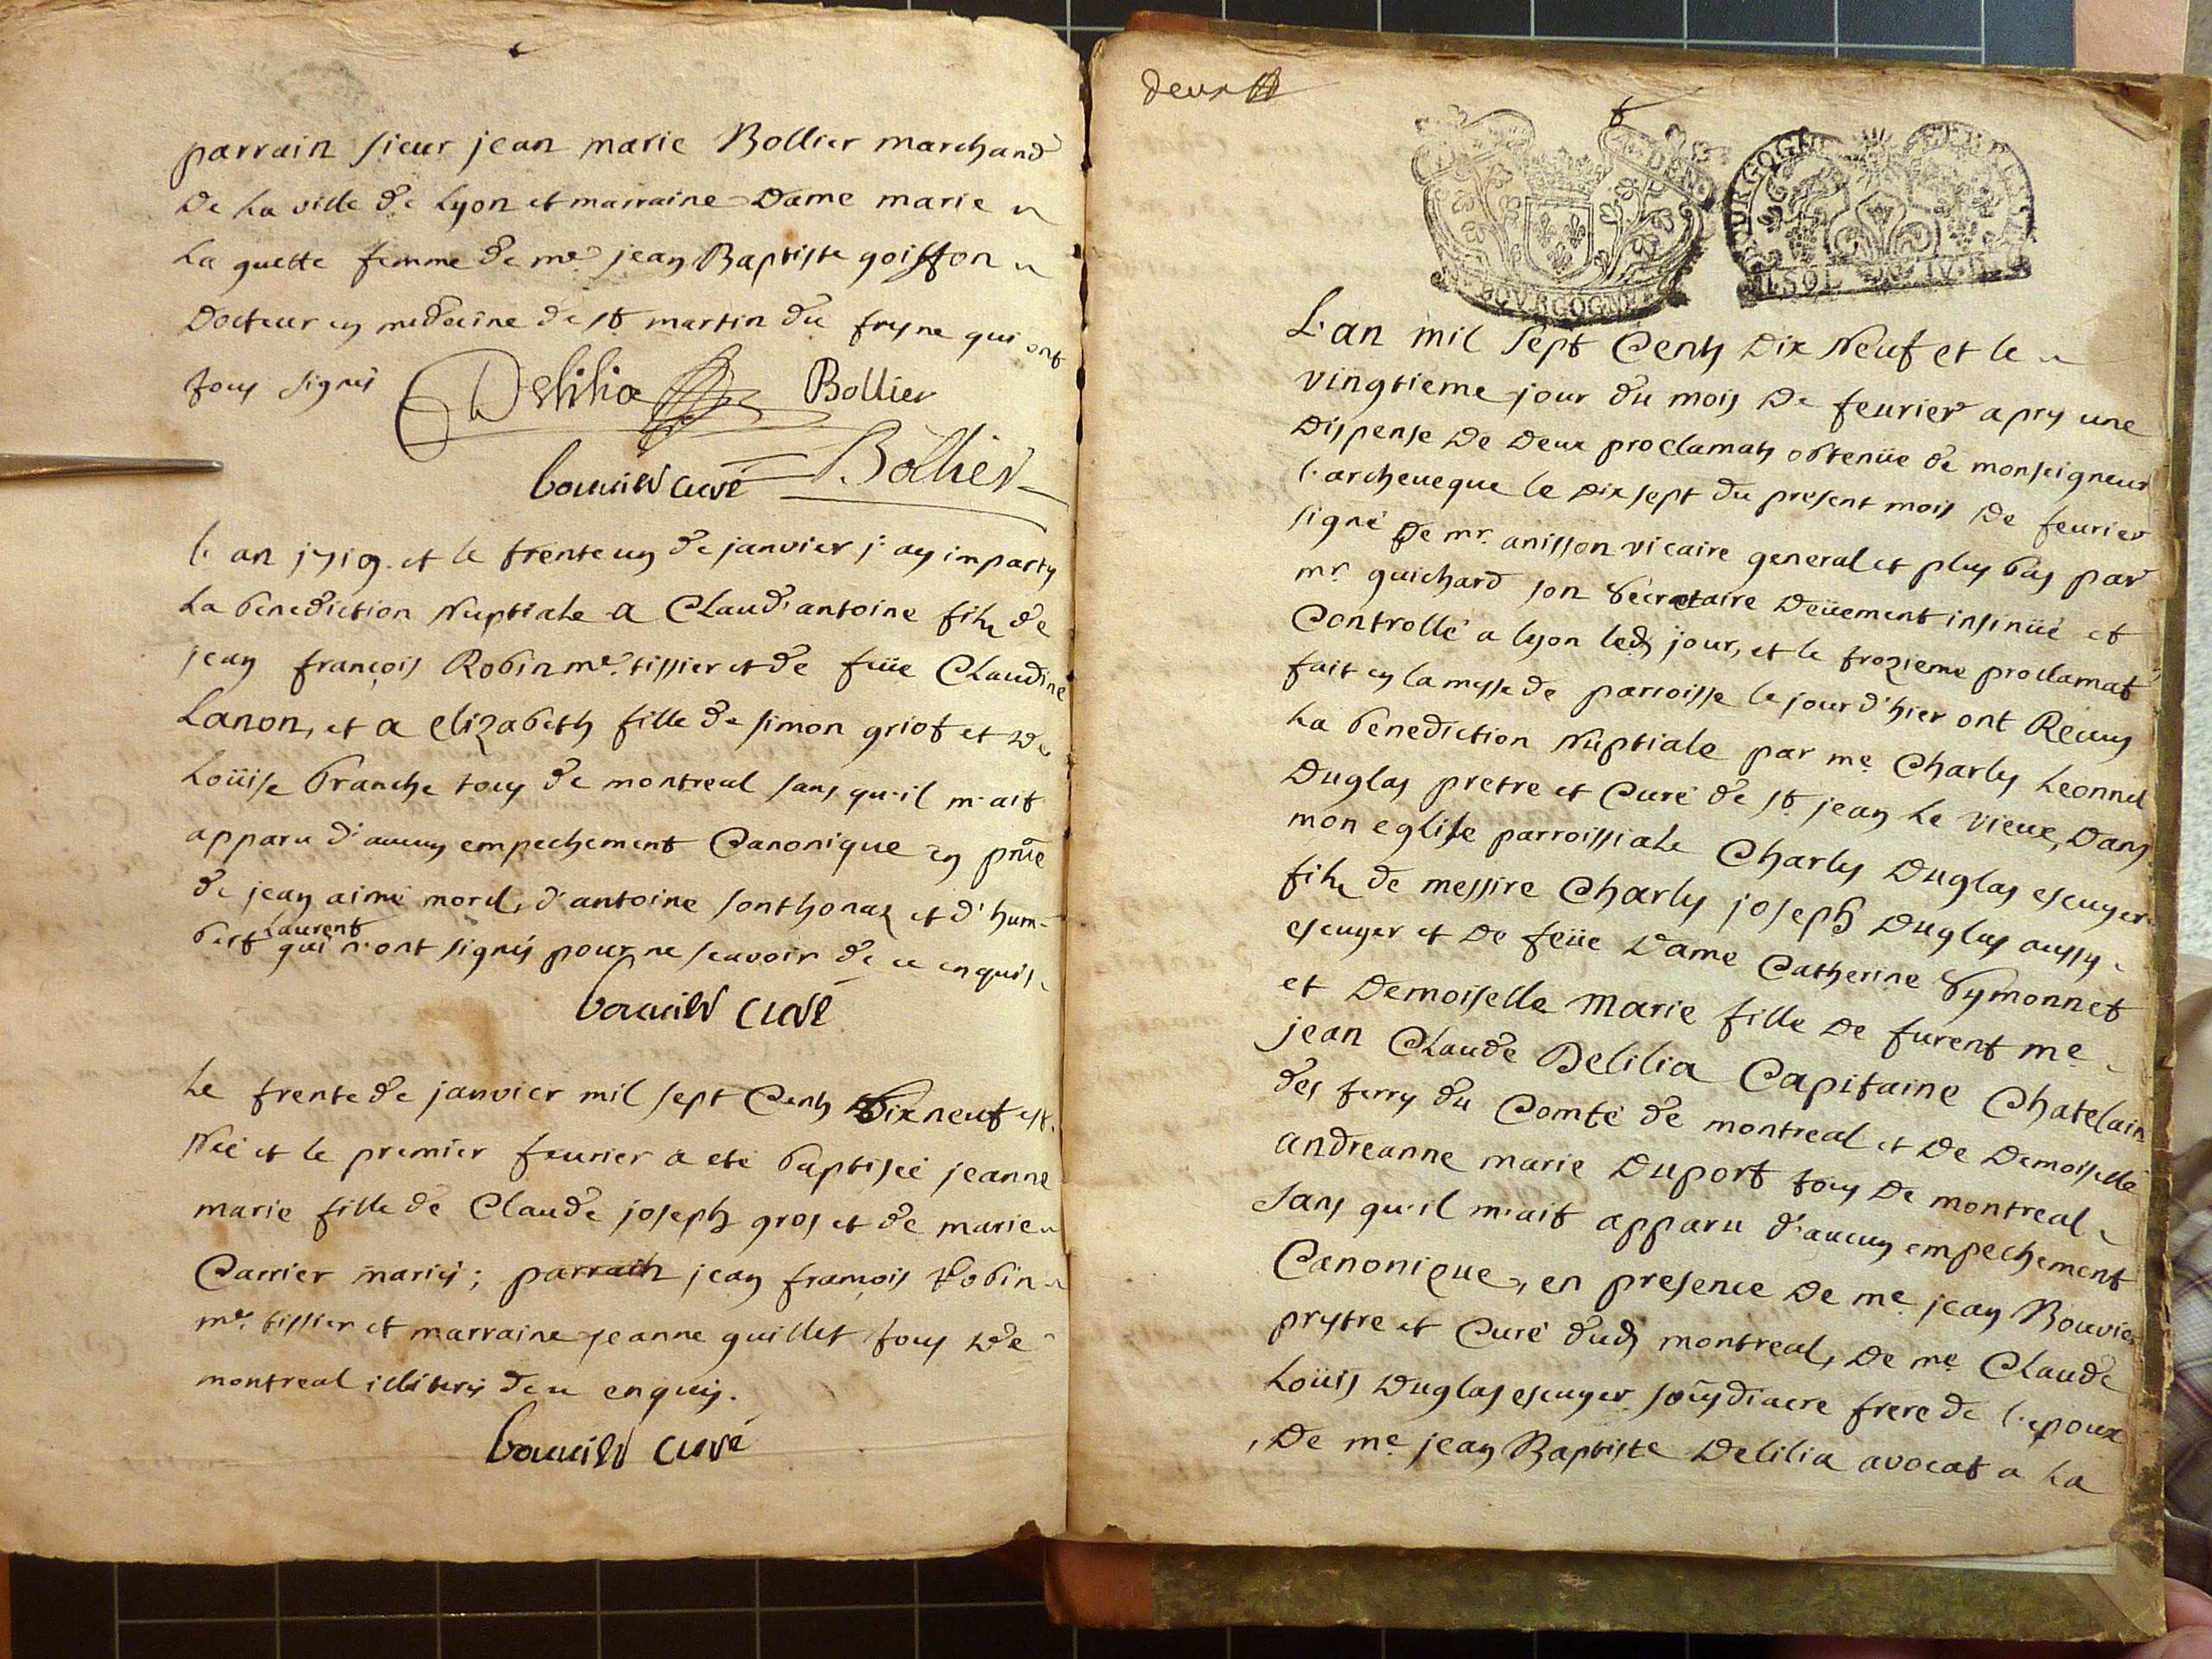 parrain sieur jean marie Bollier marchand
De La ville de Lyon et marraine Dame marie
La guette femme de me jean Baptiste goiffon
Docteur en medecine de st martin du fresne qui ont
tous signés Delilia Bollier
Bollier
bouuier curé
l'an 1719. et le trente un de janvier j'ay imparty
La benediction Nuptiale a Claud'antoine fils de
jean françois Robin me. tissier et de feüe Claudine
Lanon, et a elizabeth fille de simon griot et de
Loüise branche tous de montreal sans qu'il m'ait
apparu d'aucun empechement Canonique en pnce
de jean aimé morel, d'antoine sonthonax et d'hum-
bert Laurent qui n'ont signés pour ne scavoir de ce enquis
bouuier curé
Le trente de janvier mil sept Cents Dix neuf est
Neé et le premier feurier a eté baptiseé jeanne
marie fille de Claude joseph gros et de marie
Carrier mariés; parrain jean francois Robin
me. tissier et marraine jeanne guillet tous De
montreal illiterés de ce enquis.
bouuier curé
deux
BOURGOGNE
L'an mil sept Cents Dix Neuf et le
vingtieme jour du mois De feurier apres une
Dispense De Deux proclamats obtenüe de monseigneur
l'archeueque le Dix sept du present mois De feurier
signé De mr. anisson vicaire general et plus bas par
mr. guichard son secretaire Deüement insinüé et
Controllé a lyon led. jour, et le trozieme proclamat
fait en la messe de parroisse le jour d'hier ont Receus
La benediction Nuptiale par me. Charles Leonnel
Duglas pretre et Curé de st. jean Le Vieux, Dans
mon eglise parroissiale Charles Duglas escuyer
fils de messire Charles joseph Duglas aussy
escuyer et De feüe Dame Catherine Symonnet
et Demoiselle Marie fille De furent me.
jean Claude Delilia Capitaine Chatelain
des terres du Comté de montreal et De Demoiselle
andreanne marie Duport tous De montreal
sans qu'il m'ait apparu d'aucun empechement
Canonique, en presence De me. jean Bouvier
prestre et Curé dud. montreal, De me. Claude
Loüis Duglas escuyer sousdiacre frere de l'epoux
, De me. jean Baptiste Delilia avocat a La